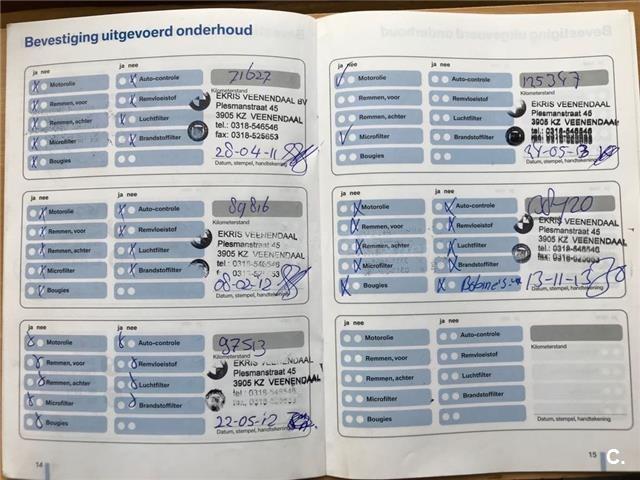 Bevestiging uitgevoerd onderhoud
ja nee
Motorolie
Remmen, voor
Remmen, achter
Microfilter
Bougies
ja nee
Auto-controle
Remvloeistof
Luchtfilter
Brandstoffilter
71627
Kilometerstand
EKRIS VEENENDAAL BV
Plesmanstraat 45
3905 KZ VEENENDAAL
tel.: 0318-546546
fax: 0318-529653
28-04-11
Datum, stempel, handtekening
ja nee
Motorolie
Remmen, voor
Remmen, achter
Microfilter
Bougies
ja nee
Auto-controle
Remvloeistof
Luchtfilter
Brandstoffilter
89816
EKRIS VEENENDAAL
Plesmanstraat 45
3905 KZ VEENENDAAL
tel.: 0318-546546
08-02-12
Datum, stempel, handtekening
ja nee
Motorolie
Remmen, voor
Remmen, achter
Microfilter
Bougies
ja nee
Auto-controle
Remvloeistof
Luchtfilter
Brandstoffilter
97513
Kilometerstand
EKRIS VEENENDAAL
Plesmanstraat 45
3905 KZ VEENENDAAL
tel.: 0318-546546
22-05-12
Datum, stempel, handtekening
14
ja nee
Motorolie
Remmen, voor
Remmen, achter
Microfilter
Bougies
ja nee
Auto-controle
Remvloeistof
Luchtfilter
Brandstoffilter
125347
Kilometerstand
EKRIS VEENENDAAL
Plesmanstraat 45
3905 KZ VEENENDAAL
tel.: 0318-546546
31-05-13
Datum, stempel, handtekening
ja nee
Motorolie
Remmen, voor
Remmen, achter
Microfilter
Bougies
ja nee
Auto-controle
Remvloeistof
Luchtfilter
Brandstoffilter
EKRIS VEENENDAAL
Plesmanstraat 45
3905 KZ VEENENDAAL
tel.: 0318-546546
13-11-13
Datum, stempel, handtekening
ja nee
Motorolie
Remmen, voor
Remmen, achter
Microfilter
Bougies
ja nee
Auto-controle
Remvloeistof
Luchtfilter
Brandstoffilter
Kilometerstand
Datum, stempel, handtekening
15
C.